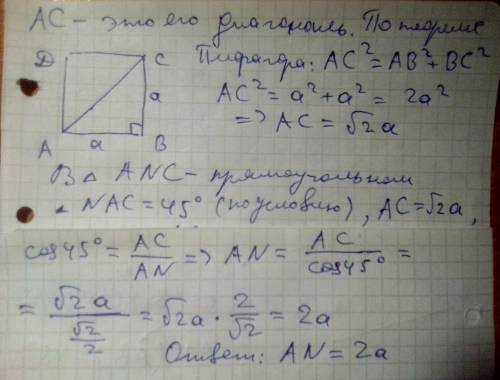 AC - это его диагональ. По теореме
Пифагора: AC² = AB² + BC²
D C
AC² = a² + a² = 2a²
a
=> AC = √2a
A a B
В △ ANC - прямоугольном
∠NAC = 45° (по условию), AC = √2a,
cos45° = AC/AN => AN = AC/cos45° =
= √2a/(√2/2) = √2a · 2/√2 = 2a
Ответ: AN = 2a